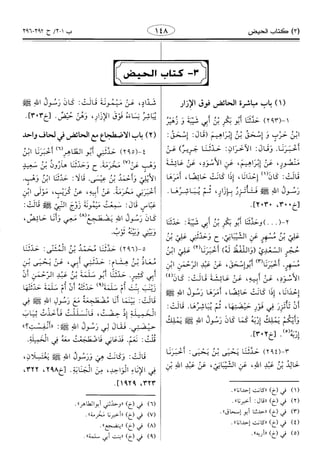 (٣) كتاب الحيض
١٤٨
ب ٢٠١/ ح ٢٩٢-٢٩٦
٣- كتاب الحيض
(١) باب مباشرة الحائض فوق الإزار
١-(٢٩٣) حَدَّثَنَا أَبُو بَكْرِ بْنُ أَبِي شَيْبَةَ وَ زُهَيْرُ
ابْنُ حَرْبٍ وَ إِسْحَقُ بْنُ إِبْرَاهِيمَ (قَالَ: إِسْحَقُ:
أَخْبَرَنَا. وَقَالَ: الْآخَرَانِ: حَدَّثَنَا جَرِيرٌ) عَنْ
مَنْصُورٍ، عَنْ إِبْرَاهِيمَ، عَنِ الْأَسْوَدِ، عَنْ عَائِشَةَ
قَالَتْ: كَانَ(١) إِحْدَانَا، إِذَا كَانَتْ حَائِضًا، أَمَرَهَا
رَسُولُ اللهِ ﷺ فَتَأْتَزِرُ بِإِزَارٍ، ثُمَّ يُبَاشِرُهَا.
[خ:٣٠٠، ٢٠٣٠].
٢-(...) وحَدَّثَنَا أَبُو بَكْرِ بْنُ أَبِي شَيْبَةَ: حَدَّثَنَا
عَلِيُّ بْنُ مُسْهِرٍ عَنِ الشَّيْبَانِيِّ. ح وَحَدَّثَنِي عَلِيُّ بْنُ
حُجْرٍ السَّعْدِيُّ (وَاللَّفْظُ لَهُ) أَخْبَرَنَا(٢) عَلِيُّ ابْنُ
مُسْهِرٍ. أَخْبَرَنَا(٣) أَبُو إِسْحَقَ، عَنْ عَبْدِ الرَّحْمَنِ ابْنِ
الْأَسْوَدِ، عَنْ أَبِيهِ، عَنْ عَائِشَةَ قَالَتْ: كَانَ(٤)
إِحْدَانَا، إِذَا كَانَتْ حَائِضًا، أَمَرَهَا رَسُولُ اللهِ ﷺ
أَنْ تَأْتَزِرَ فِي فَوْرِ حَيْضَتِهَا، ثُمَّ يُبَاشِرُهَا. قَالَتْ:
وَأَيُّكُمْ يَمْلِكُ إِرْبَهُ كَمَا كَانَ رَسُولُ اللهِ ﷺ يَمْلِكُ
إِرْبَهُ(٥). [خ:٣٠٢].
٣-(٢٩٤) حَدَّثَنَا يَحْيَى بْنُ يَحْيَى: أَخْبَرَنَا
خَالِدُ بْنُ عَبْدِ اللهِ، عَنِ الشَّيْبَانِيِّ، عَنْ عَبْدِ اللهِ بْنِ
(١) في (خ) «كانت إحدانا».
(٢) في (خ) «قال: أخبرنا».
(٣) في (خ) «حدثنا أبو إسحاق».
(٤) في (خ) «كانت إحدانا».
(٥) في (خ) «أربه».
شَدَّادٍ، عَنْ مَيْمُونَةَ قَالَتْ: كَانَ رَسُولُ اللهِ ﷺ
يُبَاشِرُ نِسَاءَهُ فَوْقَ الْإِزَارِ، وَهُنَّ حُيَّضٌ. [خ:٣٠٣].
(٢) باب الاضطجاع مع الحائض في لحاف واحد
٤-(٢٩٥) حَدَّثَنِي أَبُو الطَّاهِرِ(٦) أَخْبَرَنَا ابْنُ
وَهْبٍ عَنْ(٧) مَخْرَمَةَ. ح وَحَدَّثَنَا هَارُونُ بْنُ سَعِيدٍ
الْأَيْلِيُّ وَأَحْمَدُ بْنُ عِيسَى. قَالَا: حَدَّثَنَا ابْنُ وَهْبٍ.
أَخْبَرَنِي مَخْرَمَةُ، عَنْ أَبِيهِ، عَنْ كُرَيْبٍ، مَوْلَى ابْنِ
عَبَّاسٍ قَالَ: سَمِعْتُ مَيْمُونَةَ زَوْجَ النَّبِيِّ ﷺ قَالَتْ:
كَانَ رَسُولُ اللهِ ﷺ يَضْطَجِعُ(٨) مَعِي وَأَنَا حَائِضٌ،
وَبَيْنِي وَبَيْنَهُ ثَوْبٌ.
٥-(٢٩٦) حَدَّثَنَا مُحَمَّدُ بْنُ الْمُثَنَّى: حَدَّثَنَا
مُعَاذُ بْنُ هِشَامٍ: حَدَّثَنِي أَبِي، عَنْ يَحْيَى بْنِ
أَبِي كَثِيرٍ. حَدَّثَنَا أَبُو سَلَمَةَ بْنُ عَبْدِ الرَّحْمَنِ أَنَّ
زَيْنَبَ بِنْتَ أُمِّ سَلَمَةَ(٩) حَدَّثَتْهُ أَنَّ أُمَّ سَلَمَةَ حَدَّثَتْهَا
قَالَتْ: بَيْنَمَا أَنَا مُضْطَجِعَةٌ مَعَ رَسُولِ اللهِ ﷺ فِي
الْخَمِيلَةِ إِذْ حِضْتُ، فَانْسَلَلْتُ فَأَخَذْتُ ثِيَابَ
حِيضَتِي. فَقَالَ لِي رَسُولُ اللهِ ﷺ: «أَنُفِسْتِ؟»
قُلْتُ: نَعَمْ. فَدَعَانِي فَاضْطَجَعْتُ مَعَهُ فِي الْخَمِيلَةِ.
قَالَتْ: وَكَانَتْ هِيَ وَرَسُولُ اللهِ ﷺ يَغْتَسِلَانِ،
فِي الْإِنَاءِ الْوَاحِدِ، مِنَ الْجَنَابَةِ. [خ:٢٩٨، ٣٢٢،
٣٢٣، ١٩٢٩].
(٦) في (خ) «وحدثني أبو الطاهر».
(٧) في (خ) «أخبرنا مخرمة».
(٨) في (خ) «ينضجع».
(٩) في (خ) «بنت أبي سلمة».